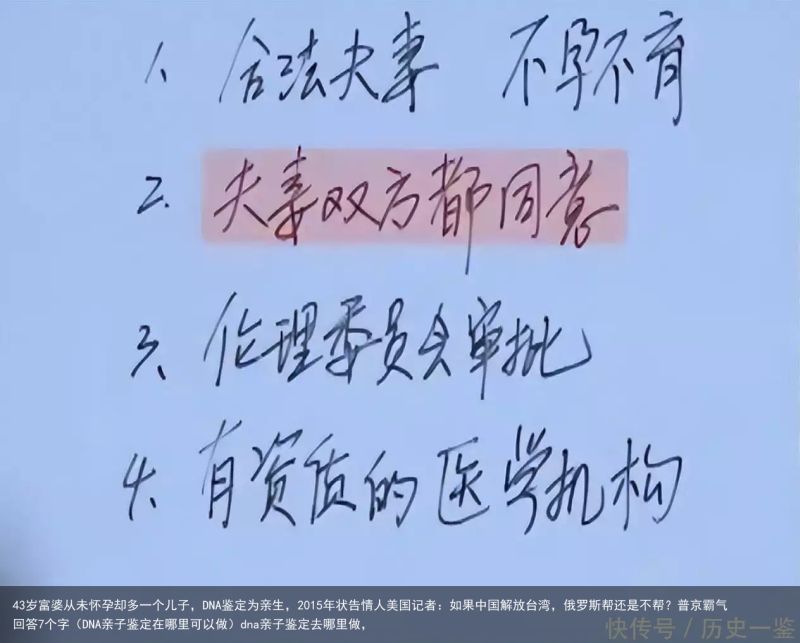 1、合法夫妻 不孕不育
2、夫妻双方都同意
3、伦理委员会审批
4、有资质的医学机构
43岁富婆从未怀孕却多一个儿子，DNA鉴定为亲生，2015年状告情人美国记者：如果中国解放台湾，俄罗斯帮还是不帮？普京霸气
回答7个字（DNA亲子鉴定在哪里可以做）dna亲子鉴定去哪里做，
快传号 / 历史一鉴